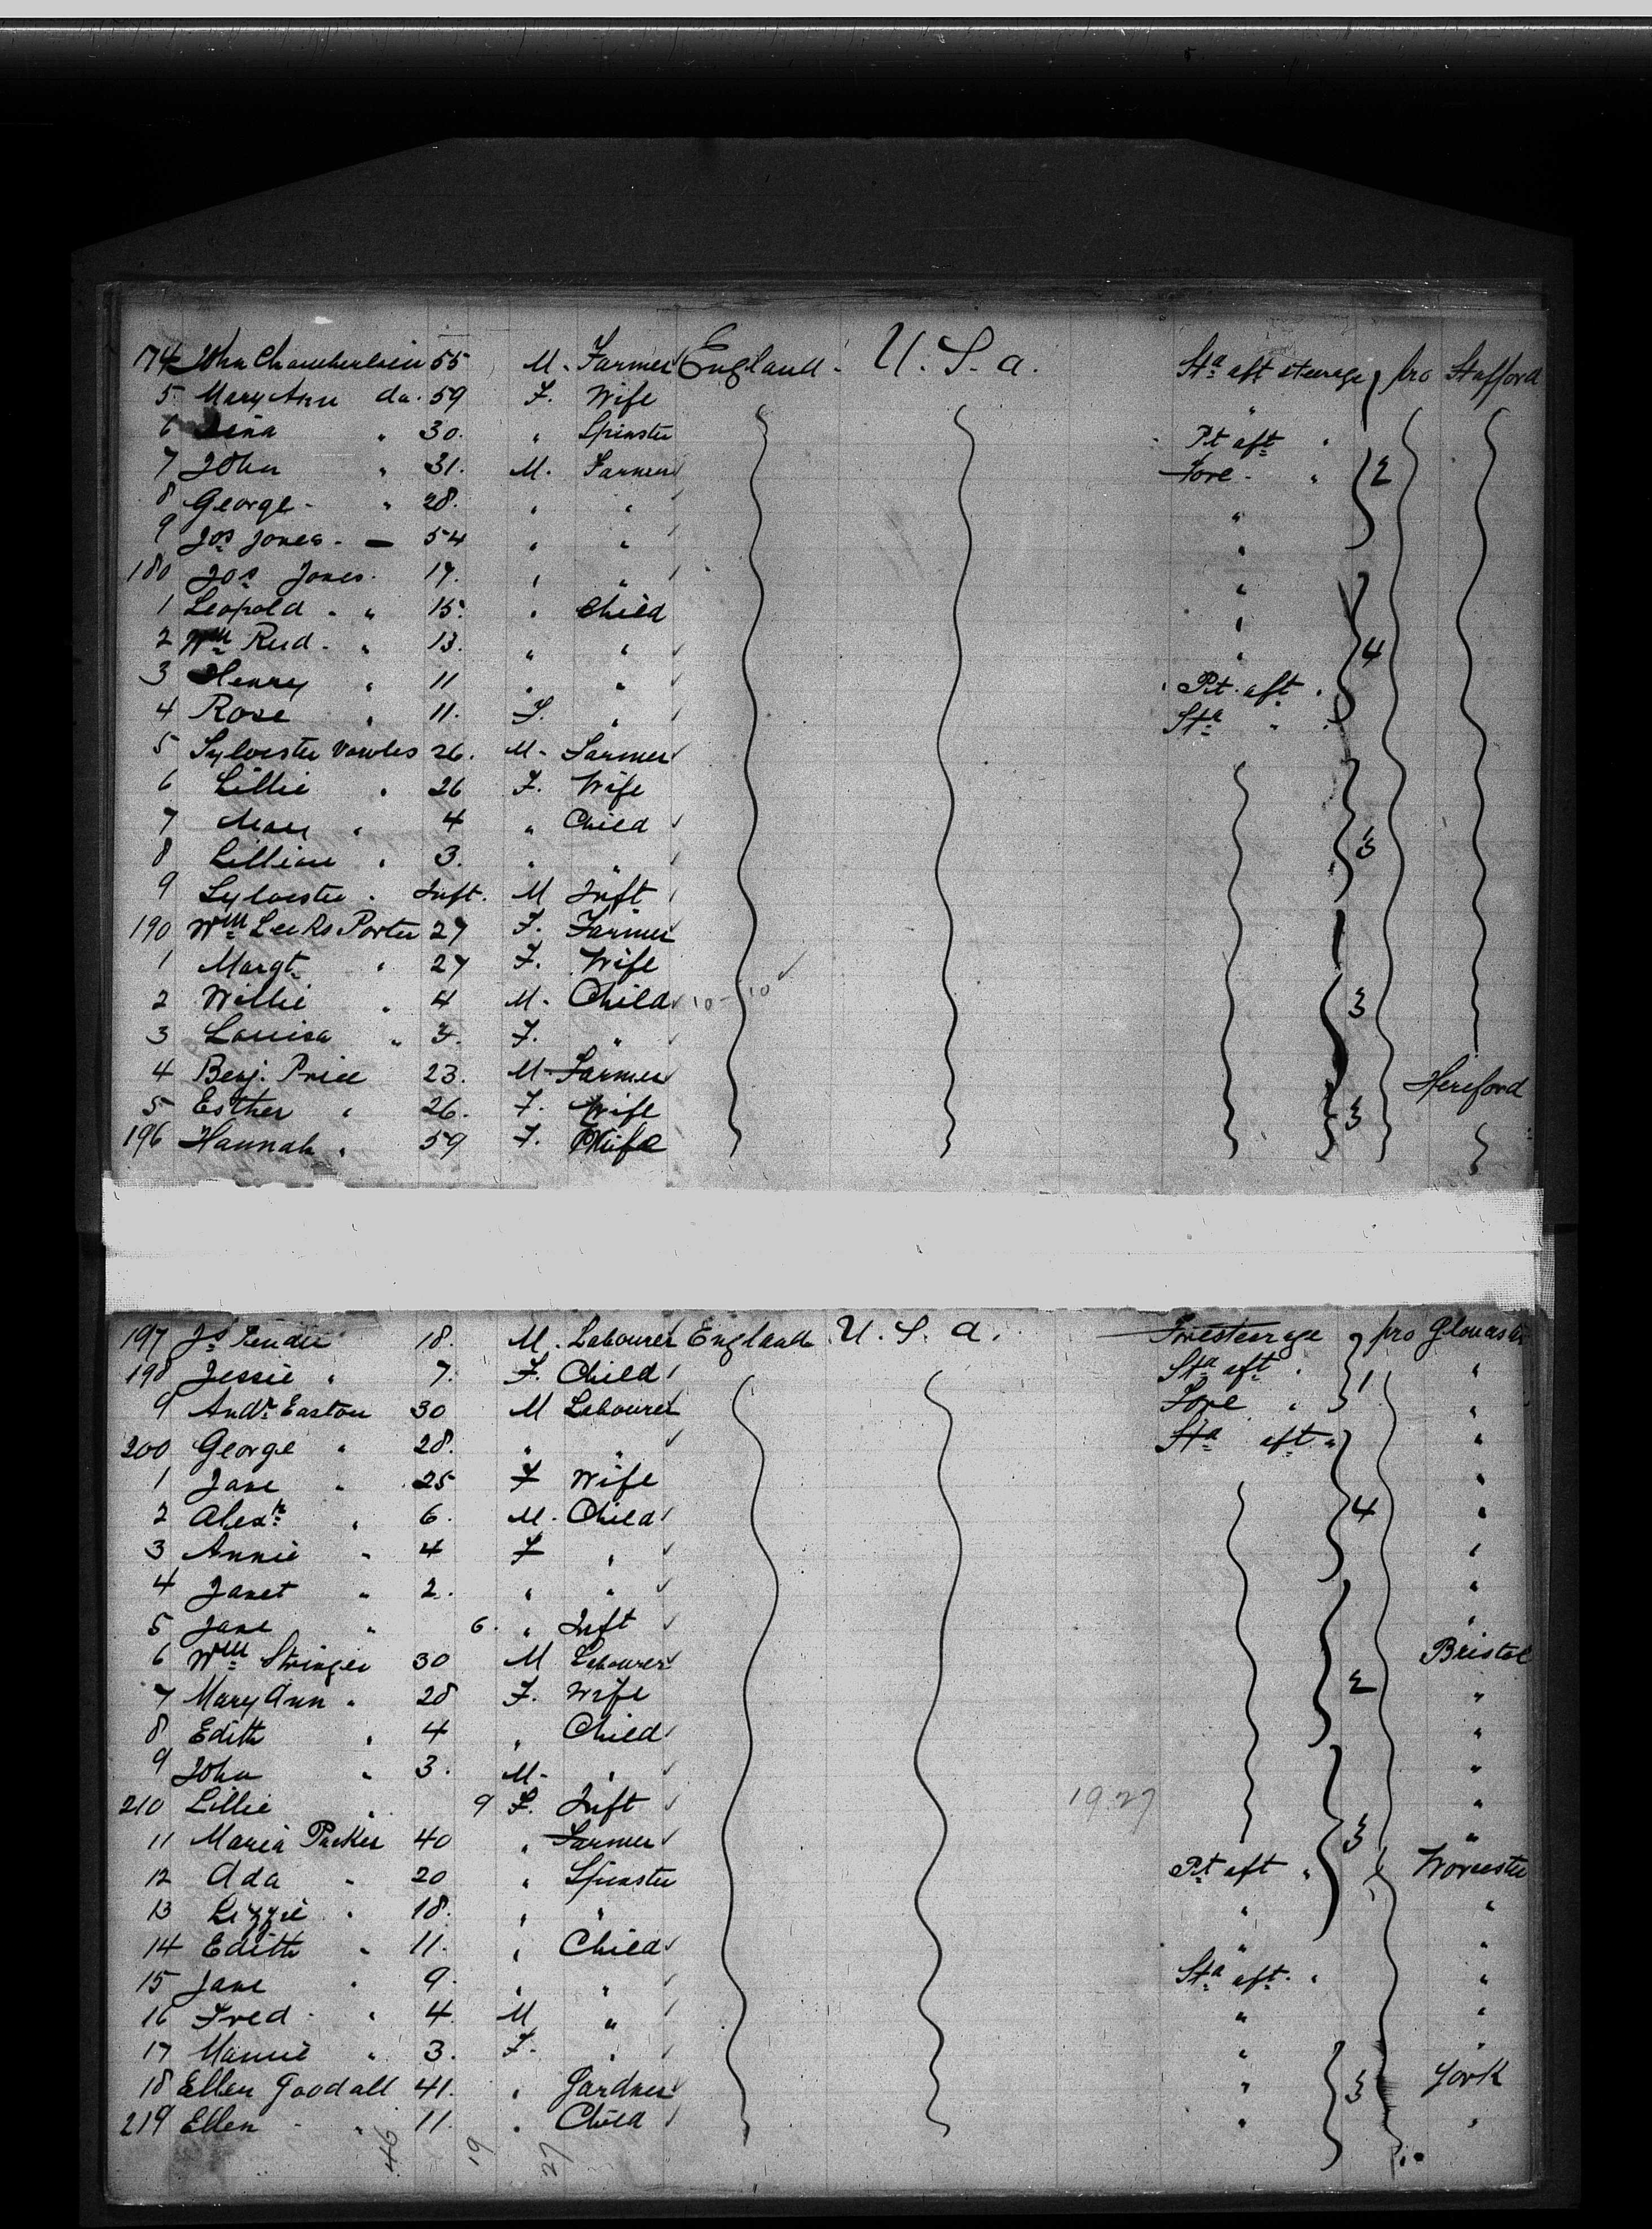 174 John Chamberlain 55 M. Farmer England. U. S. A. Sta aft steerage pro Stafford
5 Mary Ann do. 59 F. Wife "
6 " 30. " Spinster Pt aft "
7 John " 31. M. Farmer Fore - " 2
8 George - " 28. " " "
9 Jos Jones - 54 " " "
180 Jos Jones. 17. " " "
1 Leopold - " 15. " Child "
2 Wm Reid - " 13. " " " 4
3 Henry " 11 " " Pt aft "
4 Rose " 11. F. " Sta " "
5 Sylvester Vowles 26. M. Farmer
6 Lillie " 26 F. Wife
7 Mary " 4 " Child
8 Lillian " 3. " " 3
9 Sylvester " Inft. M Inft
190 Wm Porter 27 F. Farmer
1 Margt " 27 F. Wife
2 Willie " 4 M. Child 10 - 10 3
3 Louisa " 3. F. "
4 Benj. Price 23. M. Farmer Hereford
5 Esther " 26. F. Wife 3
196 Hannah " 59 F. Wife
197 Js 18. M. Labourer England U. S. A. Foresteerage pro Gloucester
198 Jessie " 7. F. Child Sta aft " 1 "
9 Andw Easton 30 M Labourer Fore " "
200 George " 28. " " Sta aft " "
1 Jane " 25 F Wife "
2 Alexr " 6. M. Child 4 "
3 Annie " 4 F " "
4 Janet " 2. " " "
5 Jane " 6. " Inft "
6 Wm Stringer 30 M Labourer Bristol
7 Mary Ann " 28 F. Wife 2 "
8 Edith " 4 " Child "
9 John " 3. M. " "
210 Lillie " 9 F. Inft 19.27 "
11 Maria Parker 40 " Farmer 3 "
12 Ada " 20 " Spinster Pt aft " Worcester
13 Lizzie " 18. " " " "
14 Edith " 11. " Child " "
15 Jane " 9. " " Sta aft. " "
16 Fred - " 4. M " " "
17 " 3. F. " " "
18 Ellen Goodall 41. " Gardner " 3 York
219 Ellen - " 11. " Child " "
46 19 27